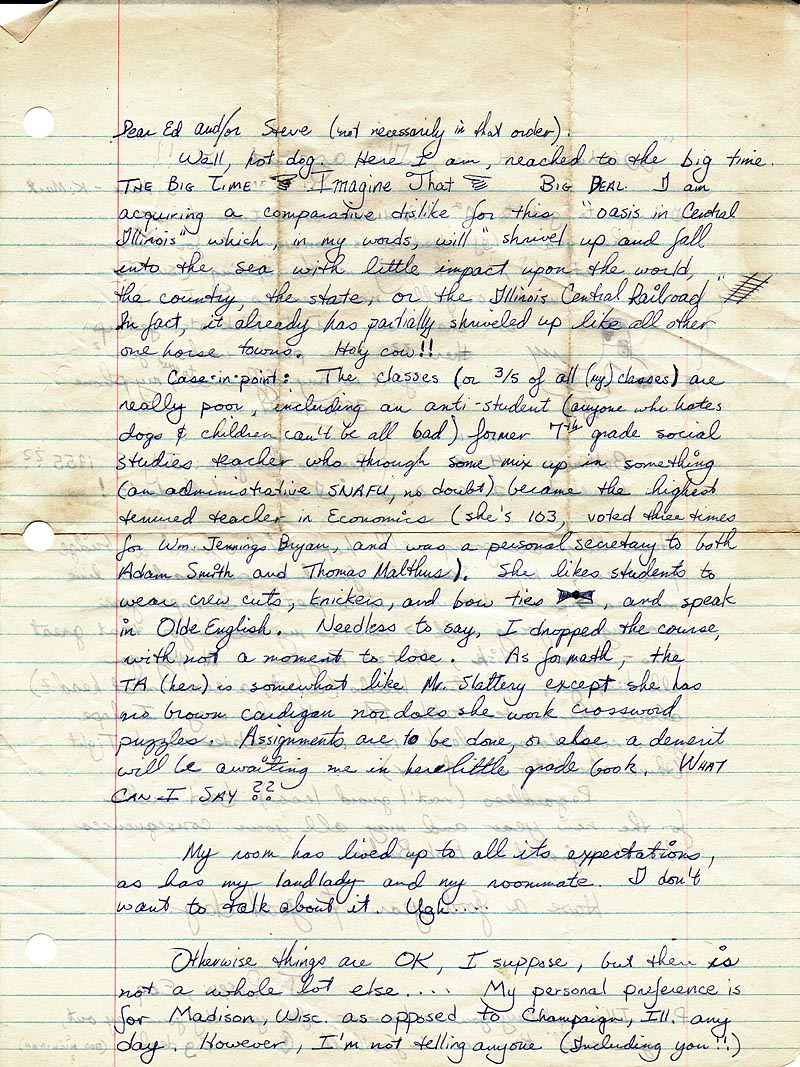 Dear Ed and/or Steve (not necessarily in that order).
Well, hot dog. Here I am, reached to the big time.
THE BIG TIME Imagine That BIG DEAL. I am
acquiring a comparative dislike for this "oasis in Central
Illinois" which, in my words, will "shrivel up and fall
into the sea with little impact upon the world,
the country, the state, or the Illinois Central Railroad"
In fact, it already has partially shriveled up like all other
one horse towns. Holy cow!!
Case-in-point: The classes (or 3/5 of all (my) classes) are
really poor, including an anti-student (anyone who hates
dogs & children can't be all bad) former 7th grade social
studies teacher who through some mix up in something
(an administrative SNAFU, no doubt) became the highest
tenured teacher in Economics (she's 103, voted three times
for Wm. Jennings Bryan, and was a personal secretary to both
Adam Smith and Thomas Malthus). She likes students to
wear crew cuts, knickers, and bow ties, and speak
in Olde English. Needless to say, I dropped the course,
with not a moment to lose. As for math, the
TA (her) is somewhat like Mr. Slattery except she has
no brown cardigan nor does she work crossword
puzzles. Assignments are to be done, or else a demerit
will be awaiting me in her little grade book. WHAT
CAN I SAY??
My room has lived up to all its expectations,
as has my landlady and my roommate. I don't
want to talk about it. Ugh....
Otherwise things are OK, I suppose, but there is
not a whole lot else.... My personal preference is
for Madison, Wisc. as opposed to Champaign, Ill. any
day. However, I'm not telling anyone (Including you!!)